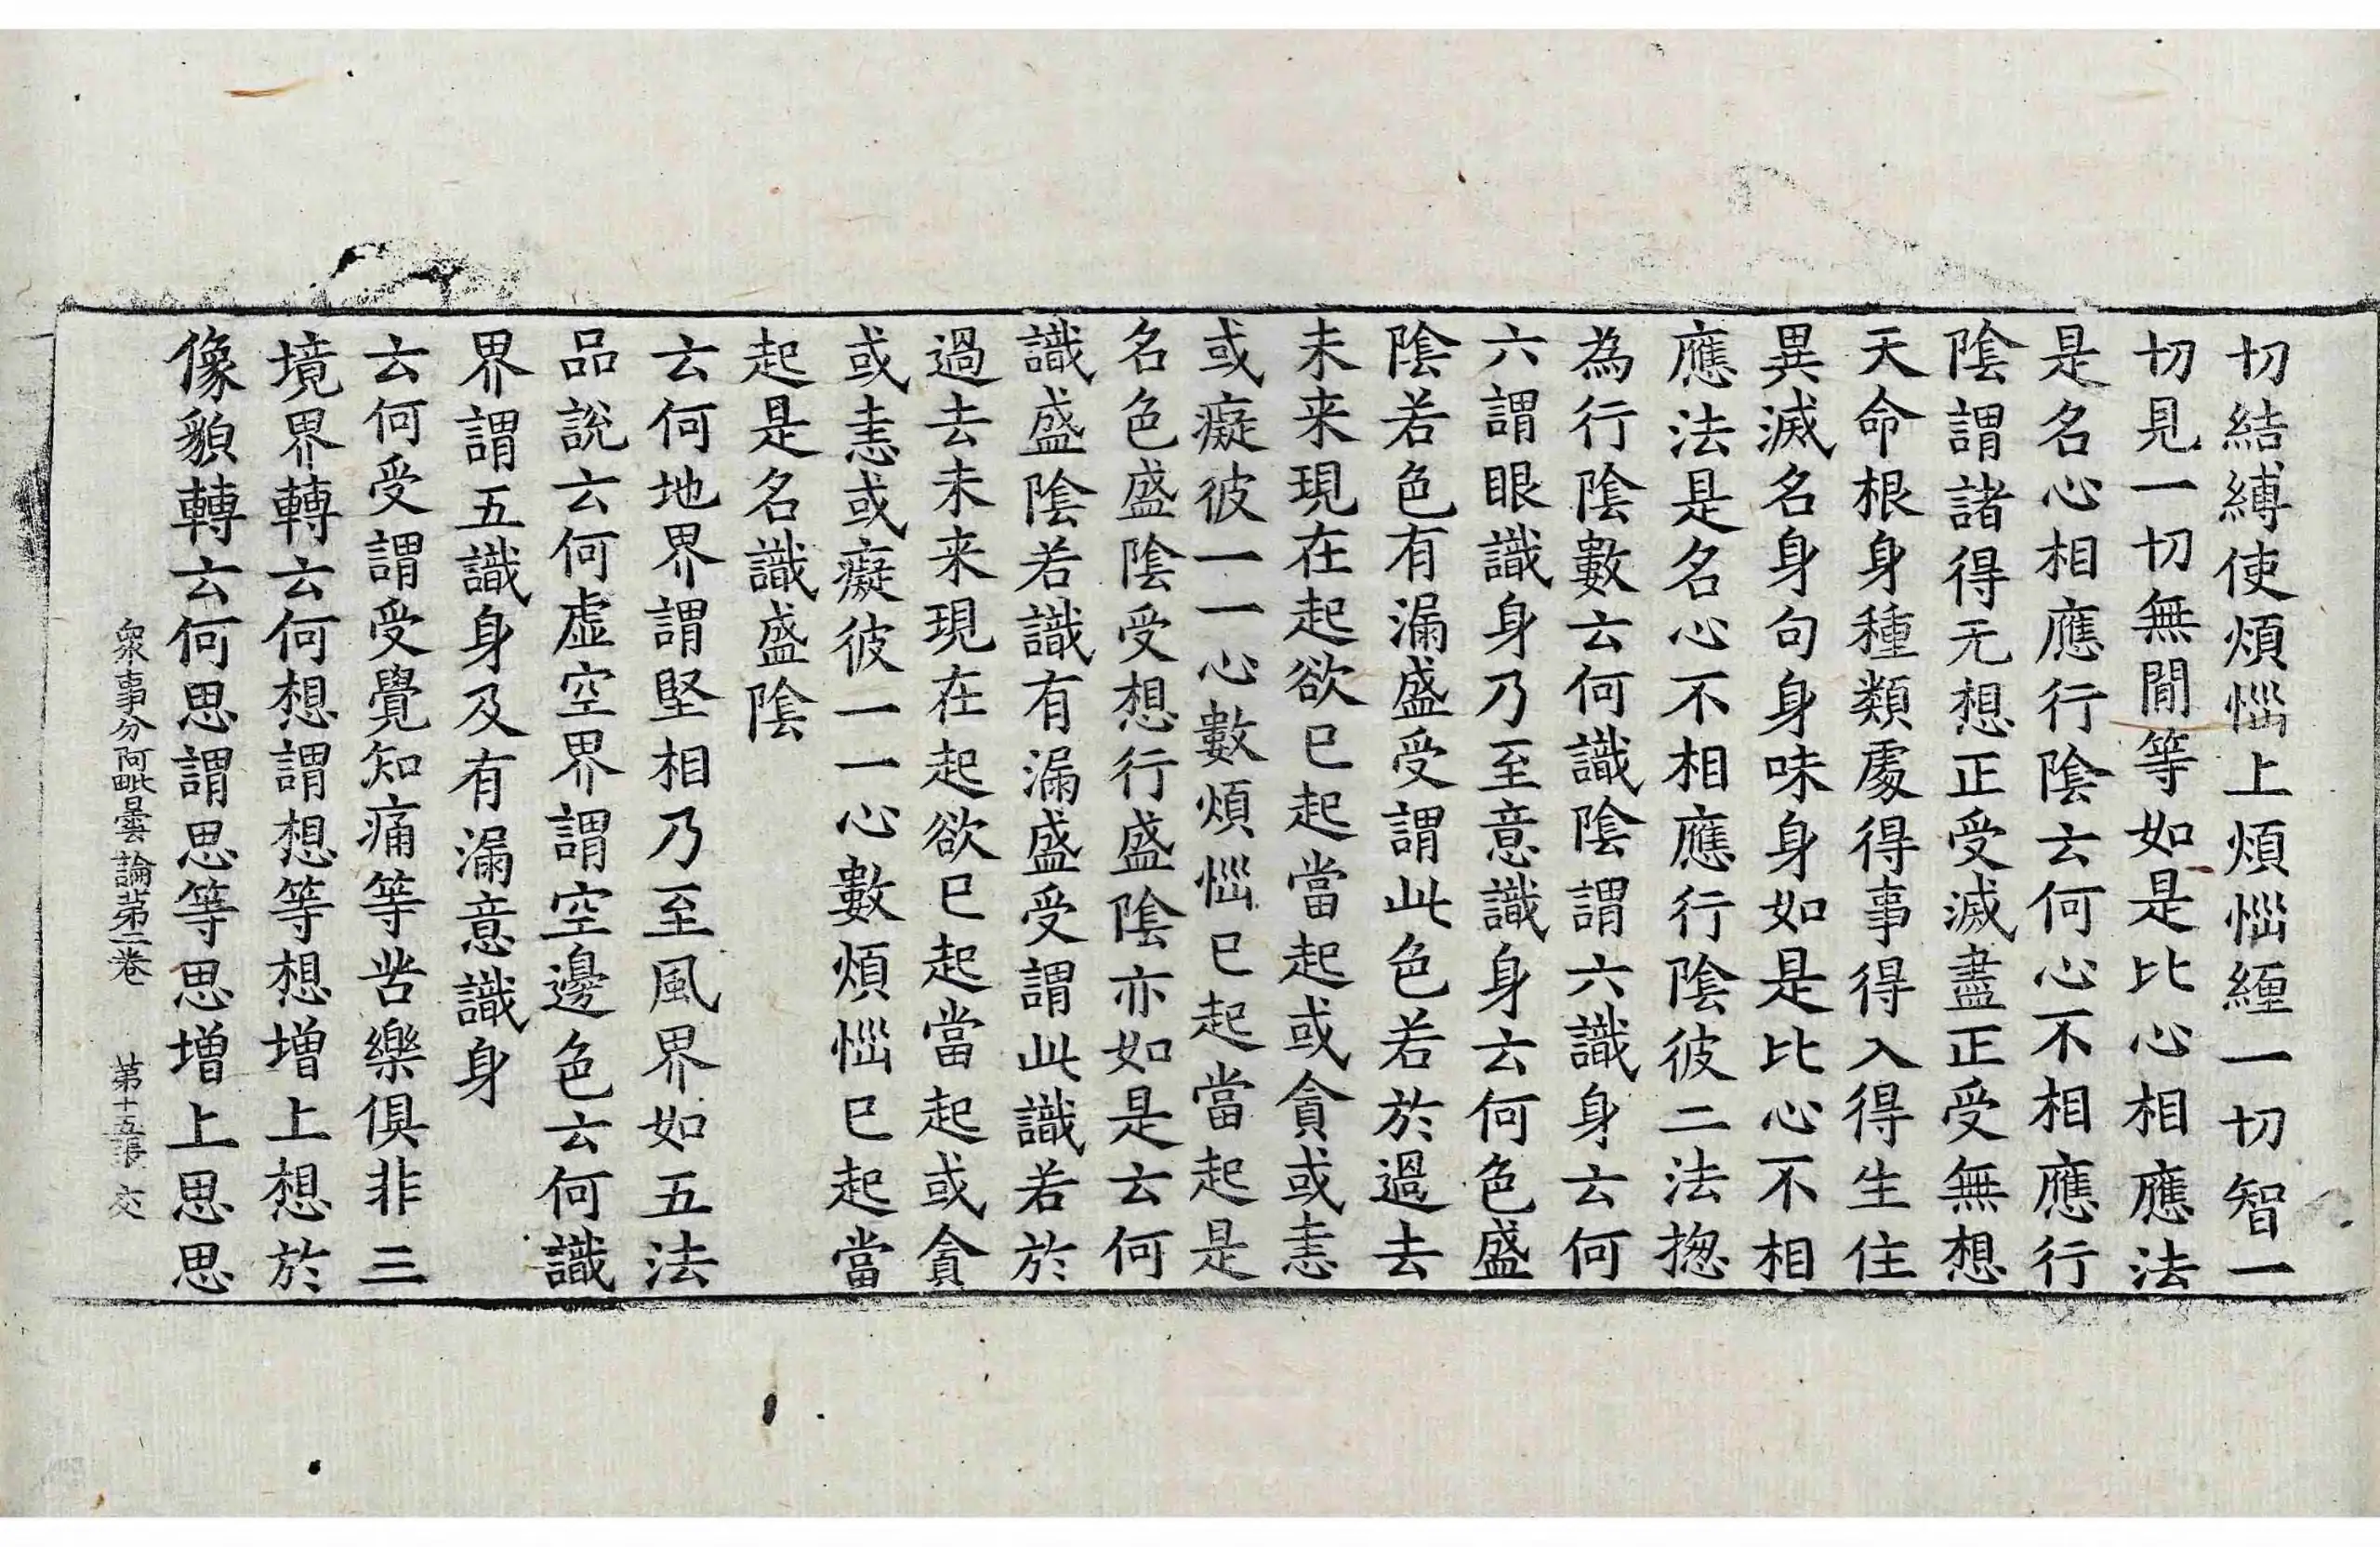 切結縛使煩惱上煩惱纏一切智一
切見一切無間等如是比心相應法
是名心相應行陰云何心不相應行
陰謂諸得无想正受滅盡正受無想
天命根身種類處得事得入得生住
異滅名身句身味身如是比心不相
應法是名心不相應行陰彼二法揔
為行陰數云何識陰謂六識身云何
六謂眼識身乃至意識身云何色盛
陰若色有漏盛受謂此色若於過去
未来現在起欲已起當起或貪或恚
或癡彼一一心數煩惱已起當起是
名色盛陰受想行盛陰亦如是云何
識盛陰若識有漏盛受謂此識若於
過去未来現在起欲已起當起或貪
或恚或癡彼一一心數煩惱已起當
起是名識盛陰
云何地界謂堅相乃至風界如五法
品說云何虛空界謂空邊色云何識
界謂五識身及有漏意識身
云何受謂受覺知痛等苦樂俱非三
境界轉云何想謂想等想增上想於
像貌轉云何思謂思等思增上思思
衆事分阿毗曇論第一卷 第十五張 交